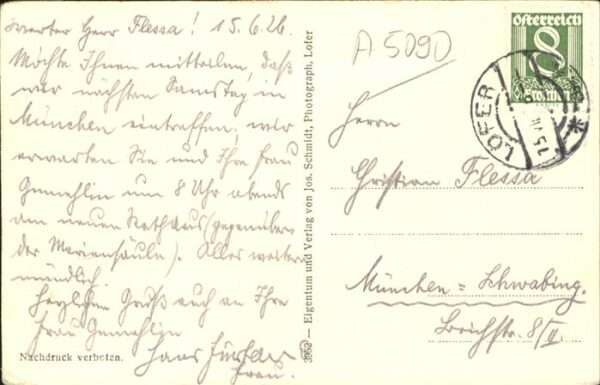 Werter Herr Flessa! 15.6.26.
Möchte Ihnen mitteilen, daß
wir nächsten Samstag in
München eintreffen, wir
erwarten Sie und Ihre Frau
Gemahlin um 8 Uhr abends
am neuen Rathaus (gegenüber
der Mariensäule). Alles weitere
mündlich.
Herzlichen Gruß auch an Ihre
Frau Gemahlin
Hans
Frau.
Nachdruck verboten.
3962 — Eigentum und Verlag von Jos. Schmidt, Photograph, Lofer
A 5090
Österreich
8
Groschen
LOFER
15 VI
*
Herrn
Christian Flessa
München = Schwabing.
8/II.